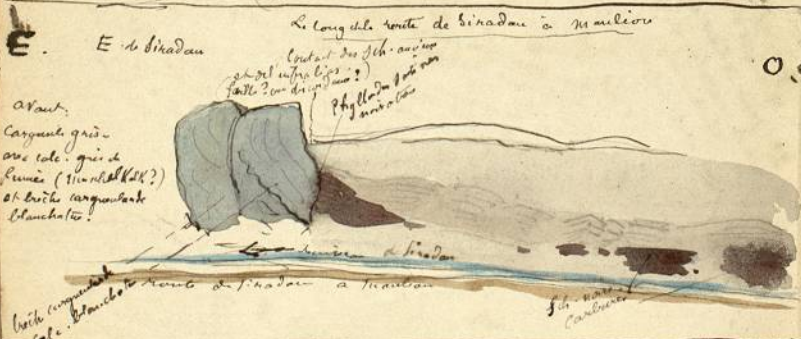 Le long de la route de Siradan à Mauléon
E.
E. de Siradan
O.
Contact des Sch. anciens
et de l'infralias
faille? ou discordance?)
Phyllades satinés
noirâtres
avant:
Cargneule grise
avec calc. gris de
fumée (Muschelkalk?)
et brèche cargneulande
blanchâtre.
de Siradan
route de Siradan a Mauléon
brèche cargneulande
calc. blanchâtre
Sch. noirs
Carburés